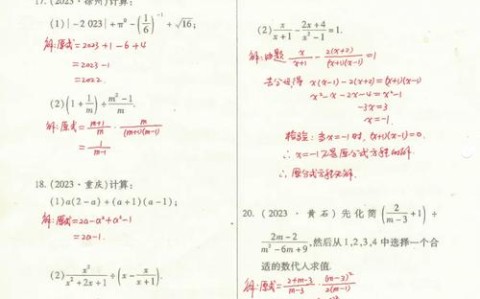 17.(2023·徐州)计算:
(1)|-2 023|+π⁰-(1/6)⁻¹+√16;
解:原式=2023+1-6+4
=2023-1
=2022.
(2)(1+1/m)÷(m²-1)/m.
解:原式=(m+1)/m·m/((m+1)(m-1))
=1/(m-1)
18.(2023·重庆)计算:
(1)a(2-a)+(a+1)(a-1);
解:原式=2a-a²+a²-1
=2a-1.
(2)x²/(x²+2x+1)÷(x-x/(x+1)).
(2)x/(x+1)-(2x+4)/(x²-1)=1.
解:由题 x/(x+1)-2(x+2)/((x+1)(x-1))=1
去分母得 x(x-1)-2(x+2)=(x+1)(x-1)
x²-x-2x-4=x²-1
-3x=3
x=-1.
检验:当x=-1时,(x+1)(x-1)=0.
∴x=-1不是原分式方程的解.
∴原分式方程无解.
20.(2023·黄石)先化简(2/(m-3)+1)÷
(2m-2)/(m²-6m+9),然后从1,2,3,4中选择一个合
适的数代入求值.
解:原式=(2+m-3)/(m-3)·(m-3)²/(2(m-1))